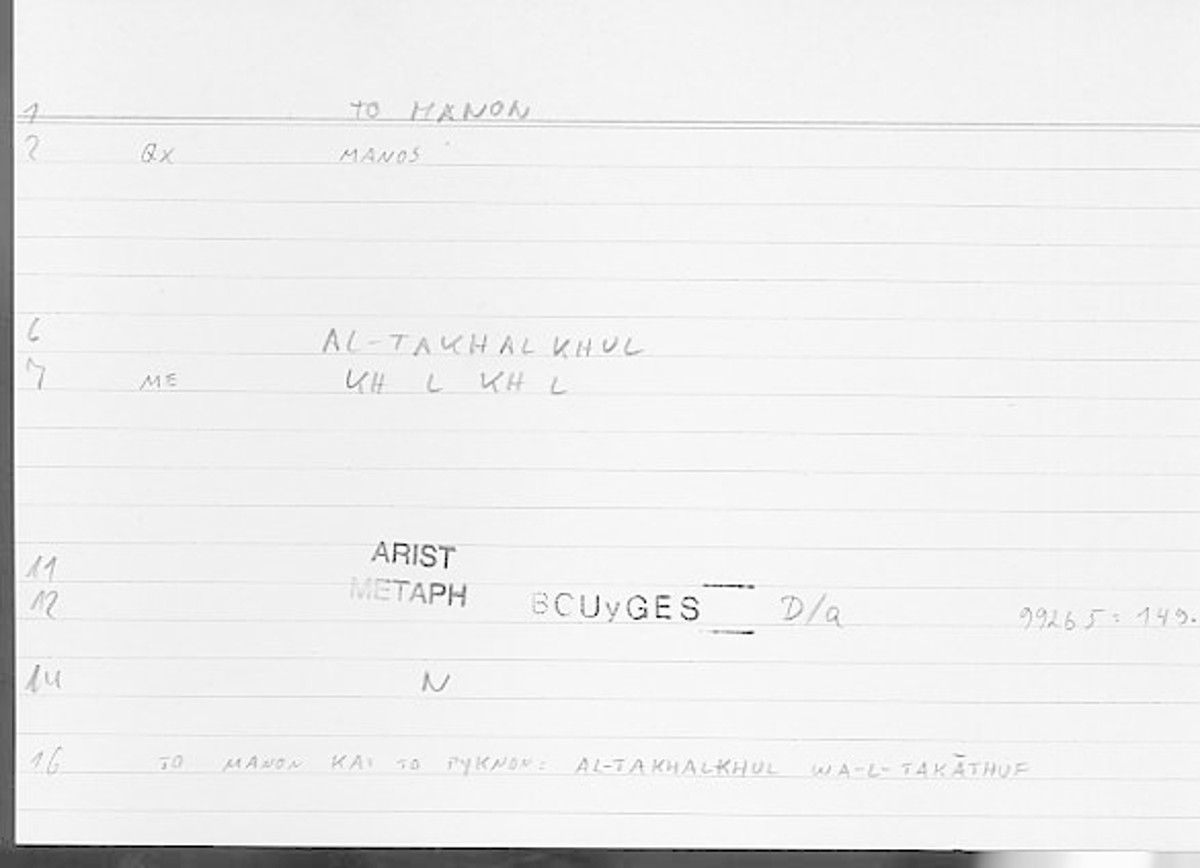 1 TO MANON
2 QX MANOS
6 AL-TAKHALKHUL
7 ME KH L KH L
11 ARIST
12 METAPH BCUyGES D/a 99265: 149.
14 N
16 TO MANON KAI TO PYKNON: AL-TAKHALKHUL WA-L-TAKĀTHUF